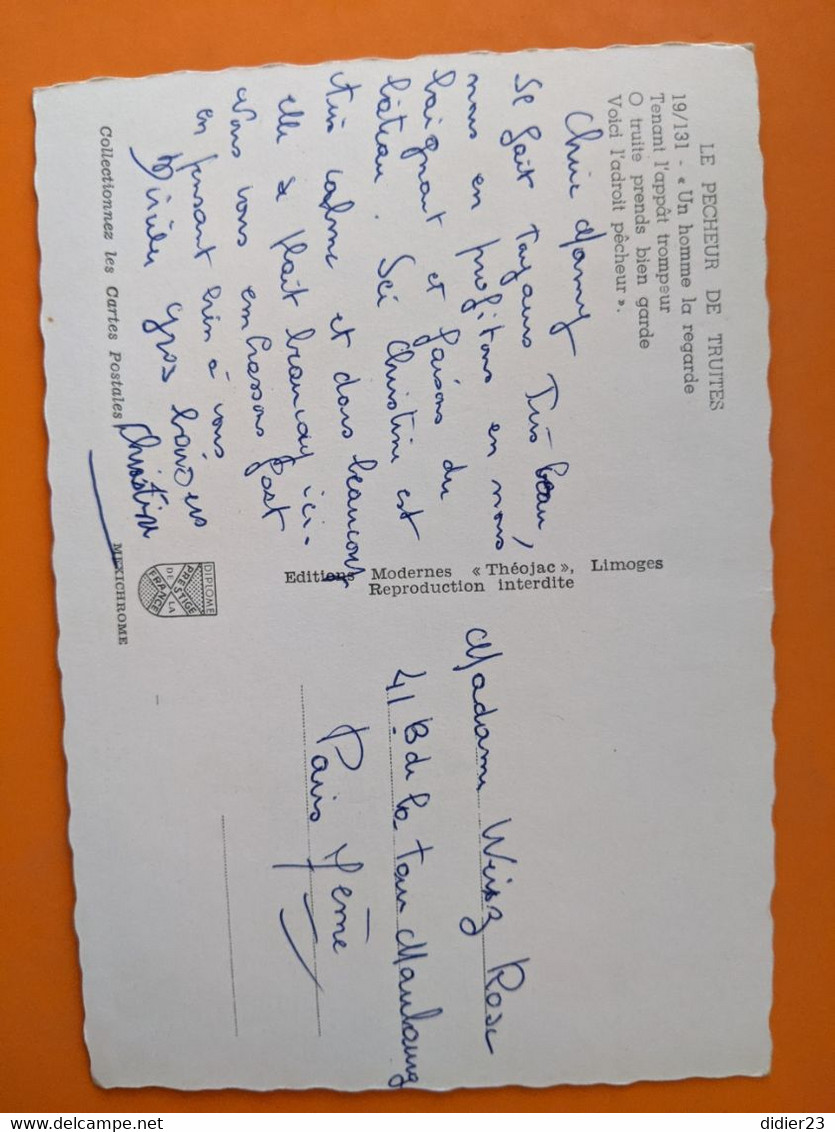 LE PECHEUR DE TRUITES
19/131 - « Un homme la regarde
Tenant l'appât trompeur
O truite prends bien garde
Voici l'adroit pêcheur ».
Chère Mamy
Il fait toujours Très beau,
nous en profitons en nous
baignant et faisons du
bâteau. Ici Christine est
très calme et dors beaucoup
elle se plaît beaucoup ici.
Nous vous embrassons fort
en pensant bien à vous
gros baisers
Christine
Collectionnez les Cartes Postales
MEXICHROME
DIPLOME
PRESTIGE
DE LA
FRANCE
Editions Modernes « Théojac », Limoges
Reproduction interdite
Madame Weisz Rose
41 B de la Tour Maubourg
Paris 7ème
didier23